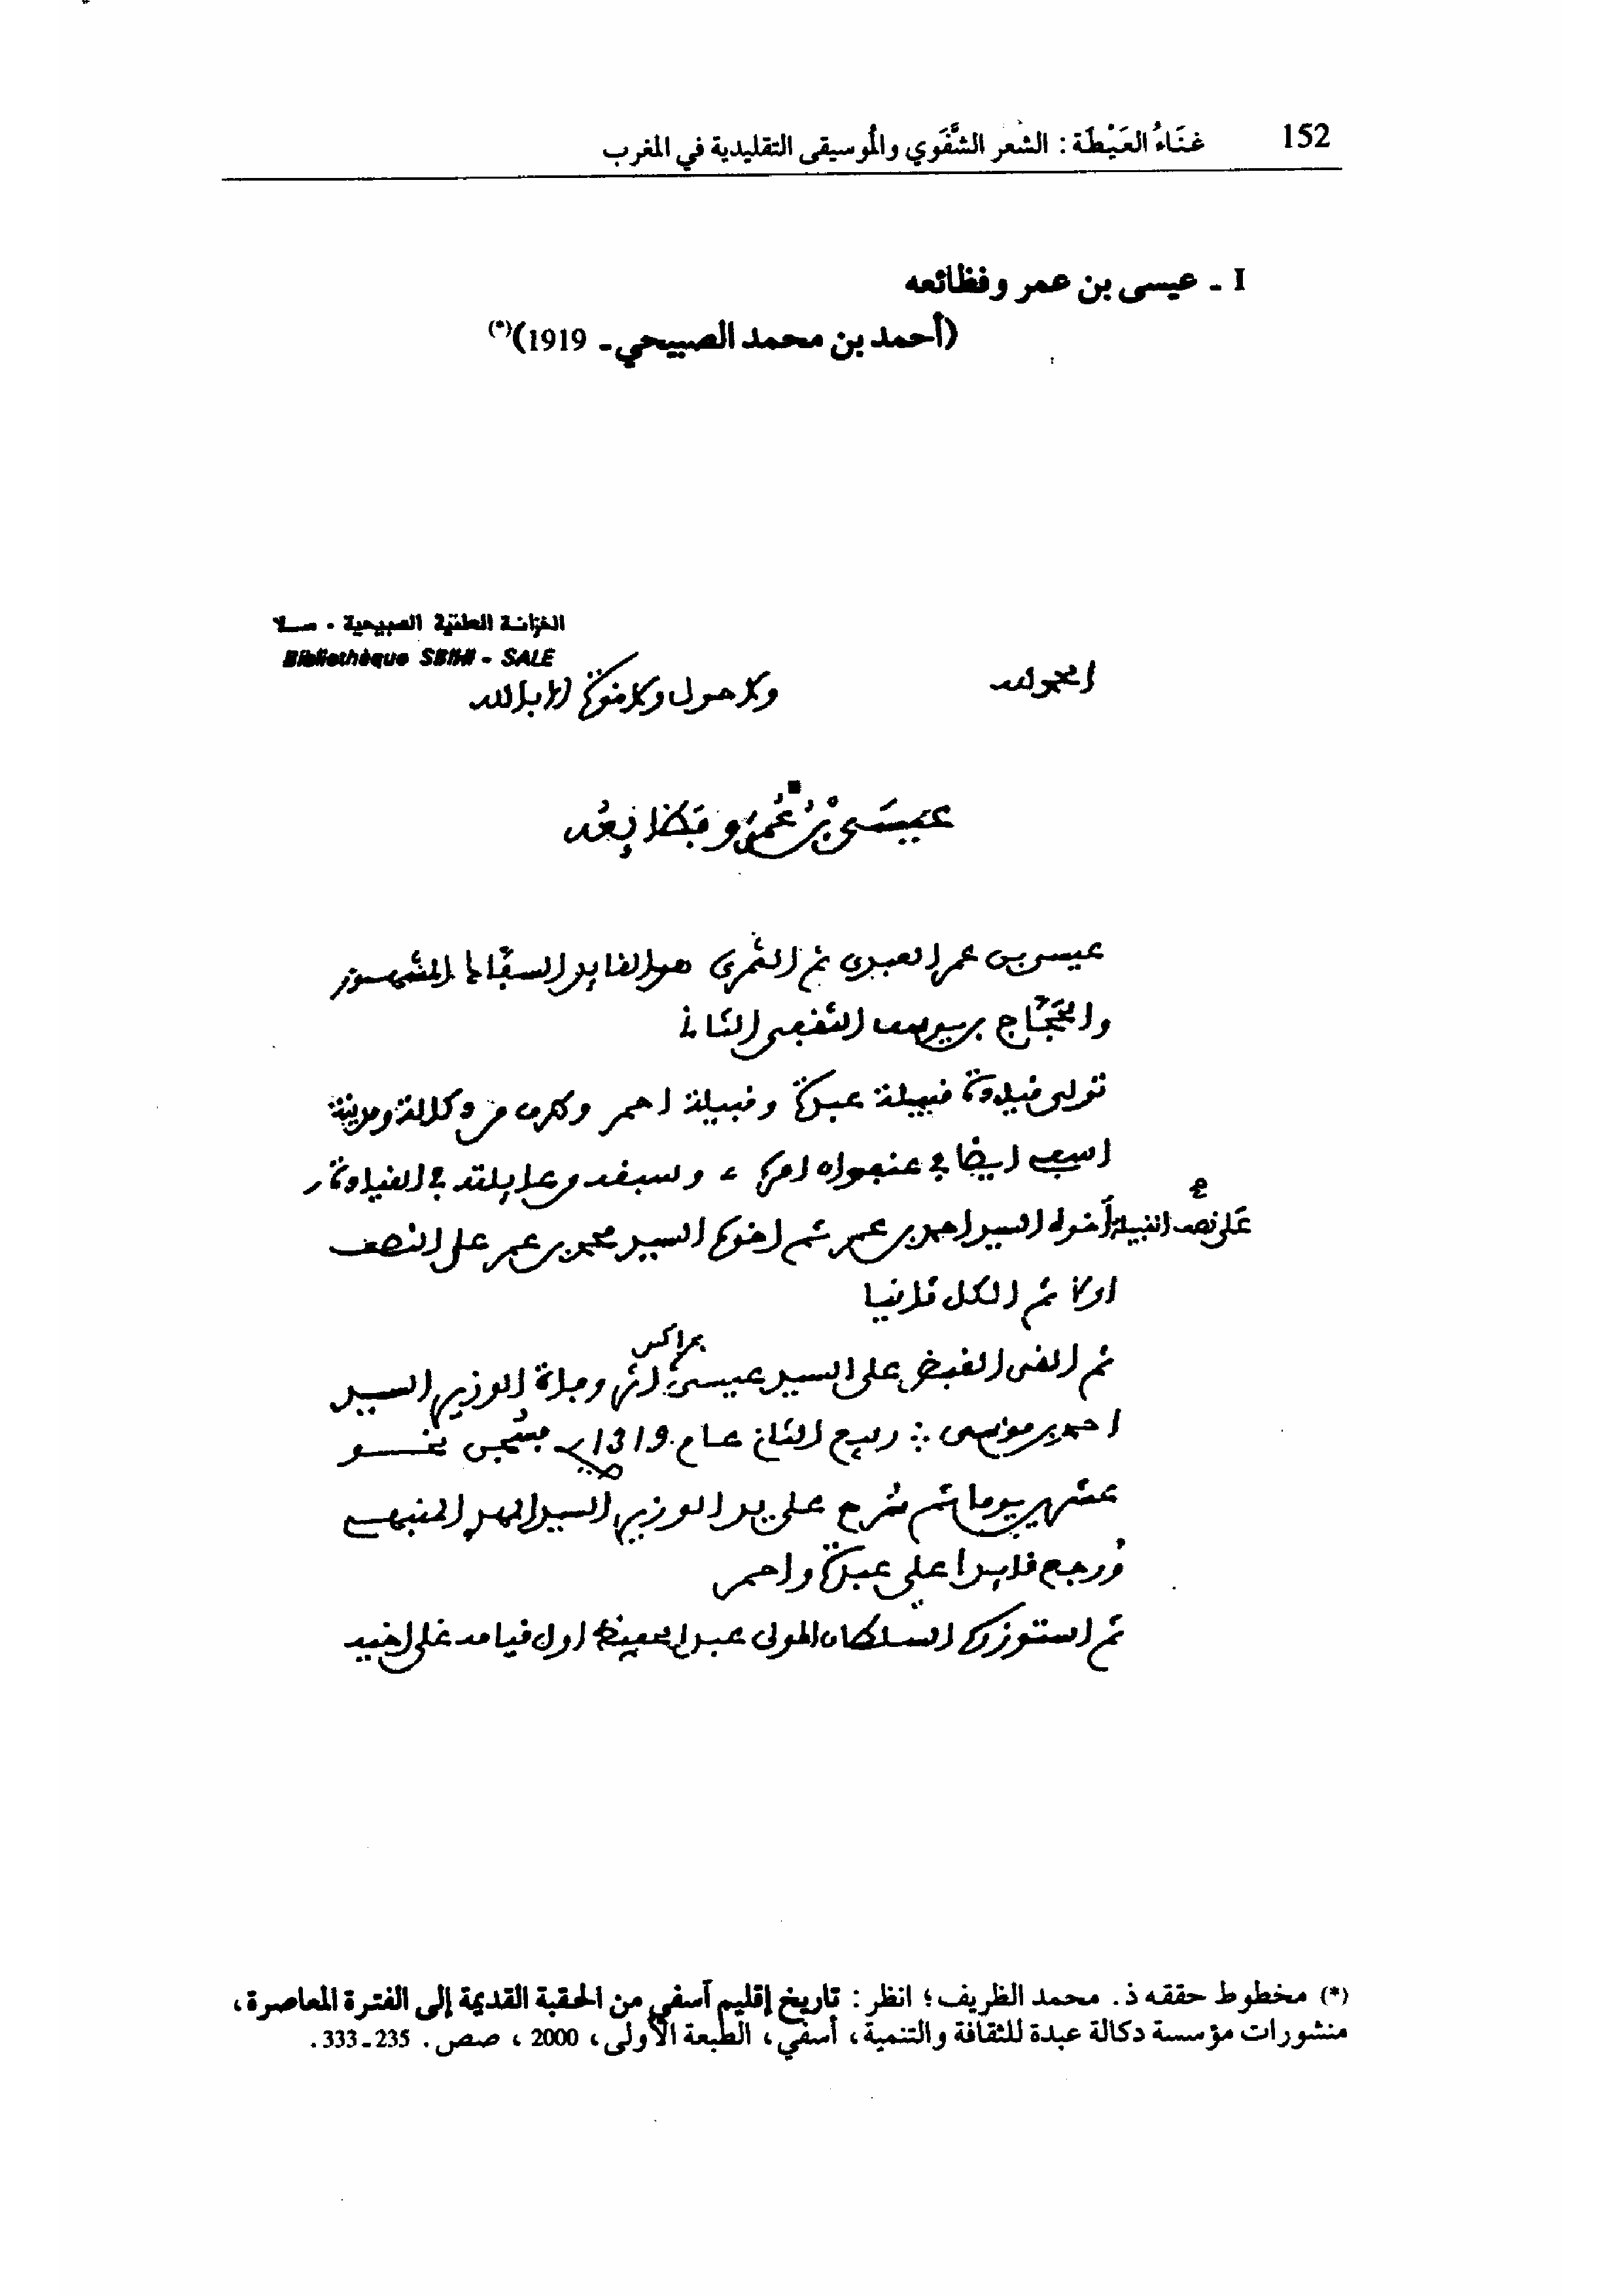 152 غنَاءُ العَيْطَة : الشعر الشَّفَوي والمُوسيقى التقليدية في المغرب
I - عيسى بن عمر وفظائعه
(أحمد بن محمد الصبيحي - 1919)(*)
الخزانة العلمية الصبيحية - سلا
Bibliothèque SBIHI - SALE
الحمد لله
ولا حول ولا قوة إلا بالله
عيسَى بْن عُمَر وفظائعُه
عيسى بن عمر العبدي ثم الثمري هو القايد السفّاك المشهور
والحَجّاج بن يوسف الثقفي الثاني
تولى قيادة قبيلة عبدة وقبيلة احمر وطرف من دكالة ومدينة
اسفي ايضا في عنفوان امره ، وسبقه من عايلته في القيادة
على نصف القبيلة أخوه السيد احمد بن عمر ثم اخوه السيد محمد بن عمر على النصف
اولا ثم الكل ثانيا
ثم القى القبض على السيد عيسى اثر وفاة الوزير السيد
بمراكش
احمد بن موسى في ربيع الثاني عام 1319 فسُجن نحو
عشرين يوما ثم سُرح على يد الوزير السيد المهدي المنبهي
ورجع قايدا على عبدة واحمر
ثم استوزره السلطان المولى عبد الحفيظ اول قيامه على اخيه
(*) مخطوط حققه ذ. محمد الظريف؛ انظر : تاريخ إقليم آسفي من الحقبة القديمة إلى الفترة المعاصرة،
منشورات مؤسسة دكالة عبدة للثقافة والتنمية، أسفي، الطبعة الأولى، 2000 ، صص. 235-333.